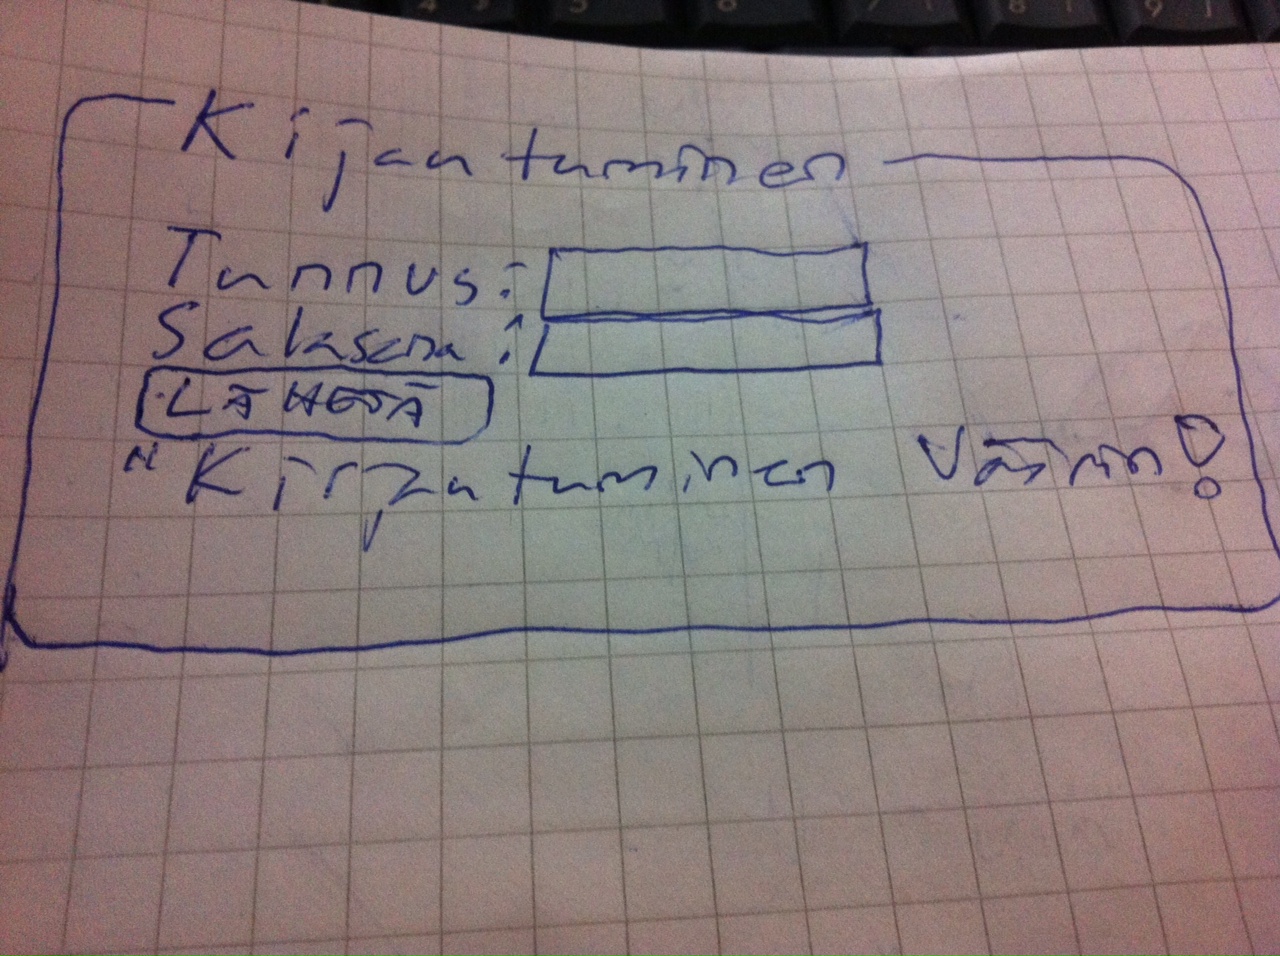 Kijautuminen
Tunnus:
Salasana:
LÄHETÄ
"Kirjautuminen Väärin!